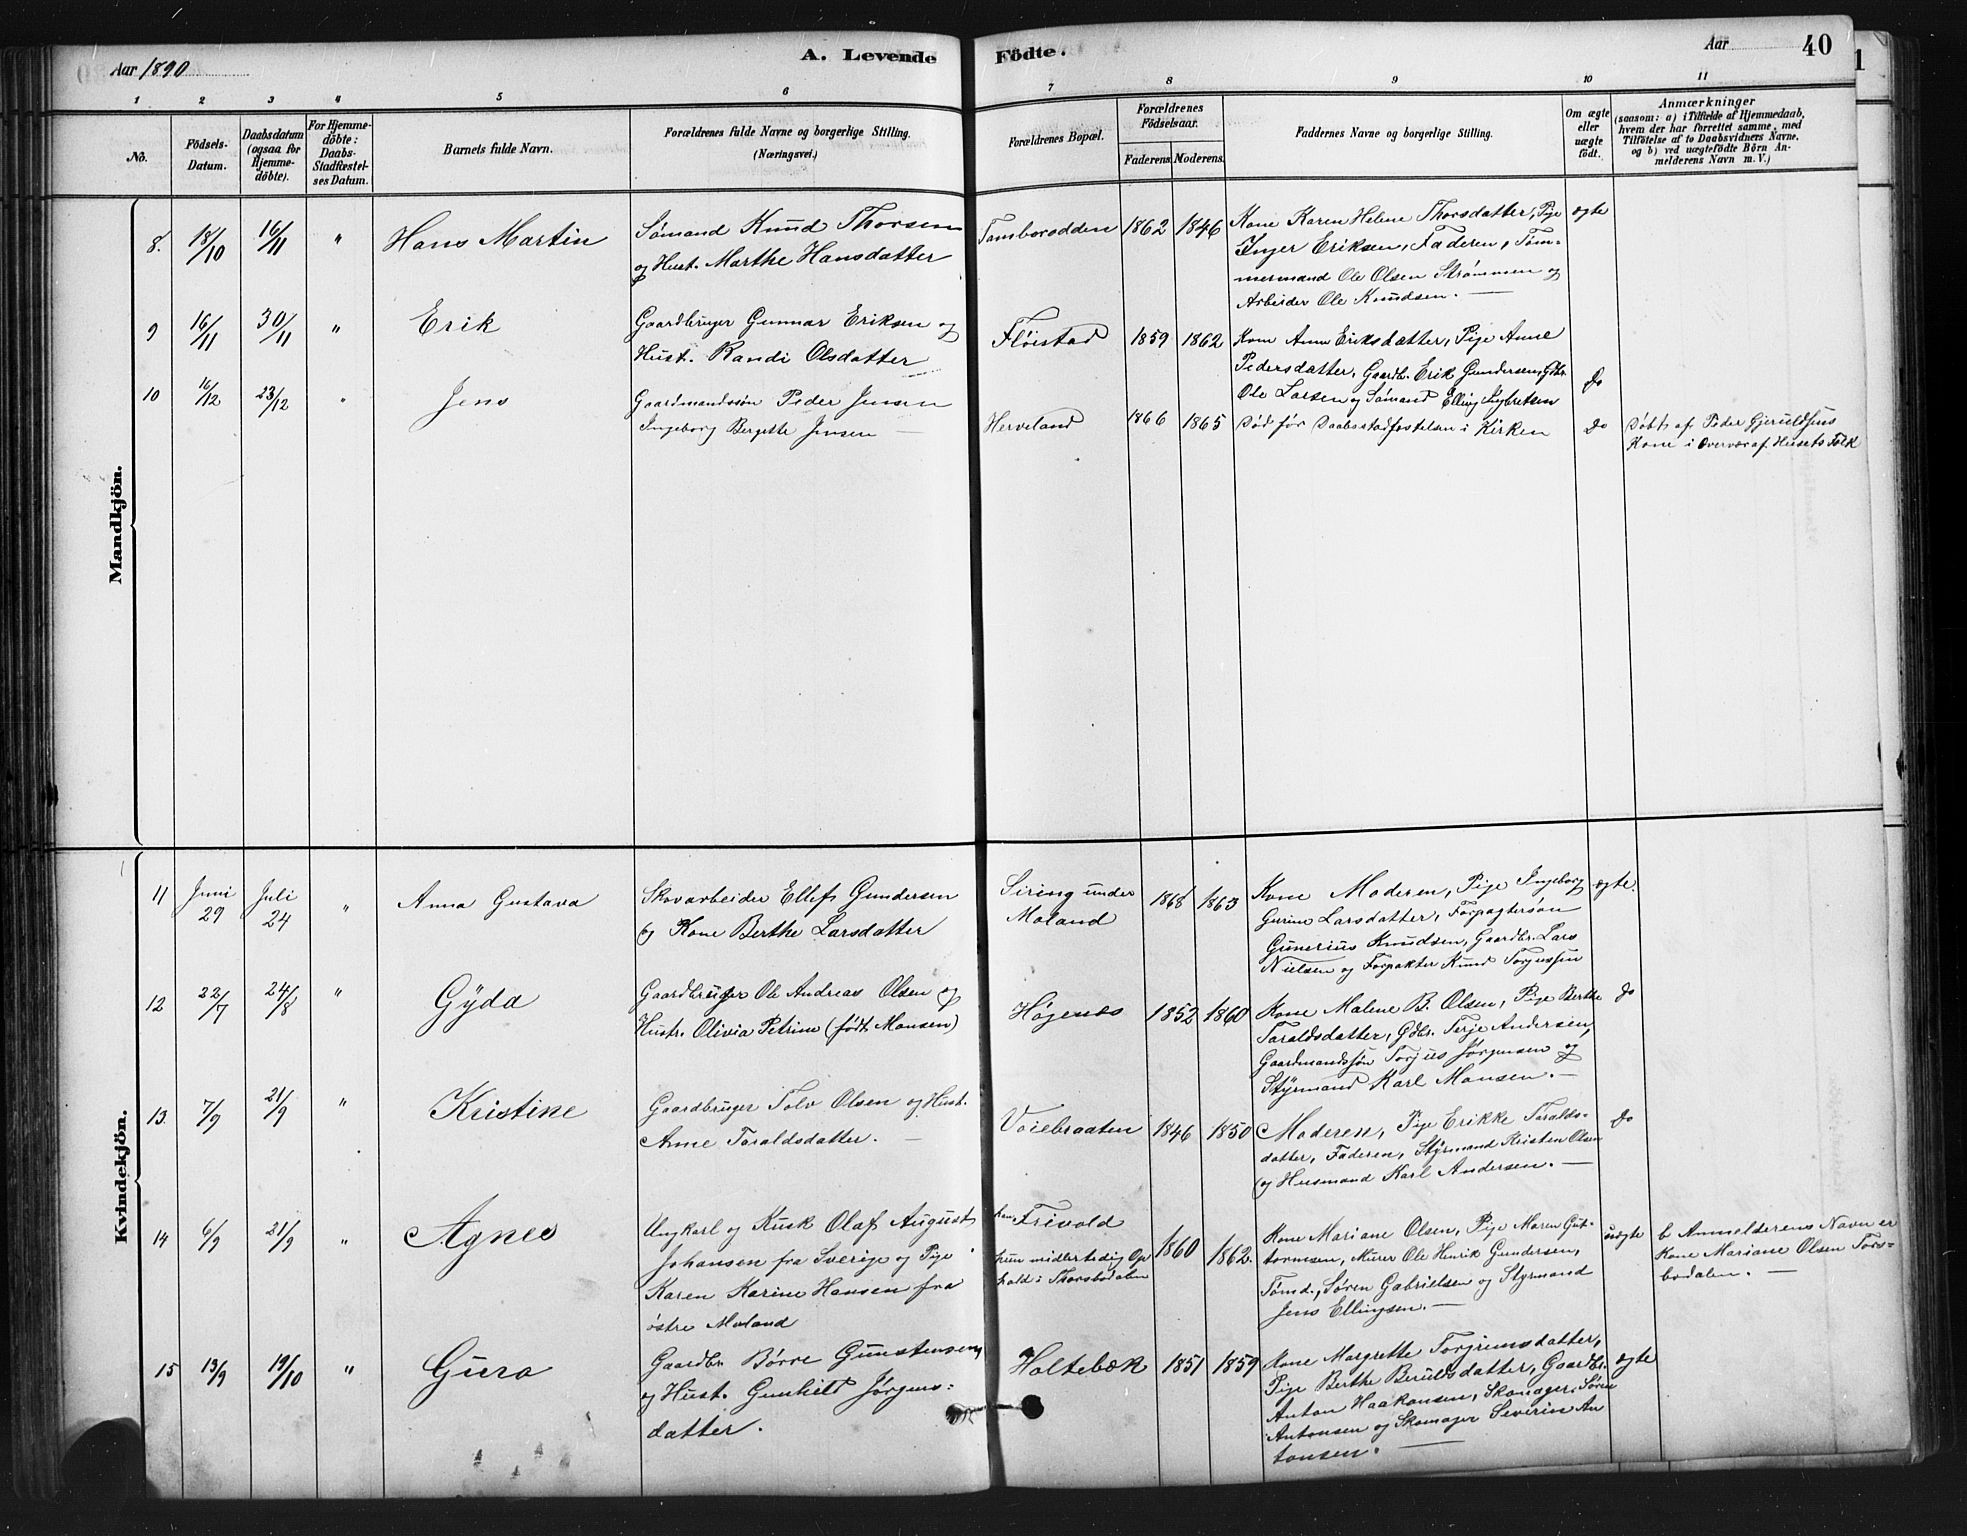 Aar 1890
A. Levende Födte.
Aar 40
1 2 3 4 5 6 7 8 9 10 11
No.
Födsels-Datum.
Daabsdatum (ogsaa for Hjemmedöbte).
For Hjemmedöbte: Daabs-Stadfæstelses Datum.
Barnets fulde Navn.
Forældrenes fulde Navne og borgerlige Stilling. (Næringsvei.)
Forældrenes Bopæl.
Forældrenes Födselsaar.
Faderens. Moderens.
Faddernes Navne og borgerlige Stilling.
Om ægte eller uægte födt.
Anmærkninger
(saasom: a) i Tilfælde af Hjemmedaab,
hvem der har forrettet samme, med
Tilföielse af to Daabsvidners Navne,
og b) ved uægtefödte Börn An-
melderens Navn m. V.)
Mandkjön.
8. 18/10 16/11 " Hans Martin
Sømand Knud Thorsen
og Hust. Marthe Hansdatter
Tamborodden 1862 1846
Kone Karen Helene Thorsdatter, Pige
Inger Eriksen, Faderen, Töm-
mermand Ole Olsen Strömmen og
Arbeider Ole Knudsen. —
ægte
9 16/11 30/11 " Erik
Gaardbruger Gunnar Eriksen og
Hust. Randi Olsdatter
Fløistad 1859 1862
Kone Anne Eriksdatter, Pige Anne
Pedersdatter, Gaardb. Erik Gundersen, Gdbr.
Ole Larsen og Sømand Elling Sybretsen
Do
10 16/12 23/12 " Jens
Gaardmandssön Peder Jensen
Ingeborg Bergette Jensen —
Herveland 1866 1865
Död för Daabsstadfæstelsen i Kirken
Do
Döbt af Peder Gjeruldsens
Kone i Overvær af Husets Folk
Kvindekjön.
11 Juni 29 Juli 24 " Anna Gustava
Skovarbeider Ellef Gundersen
og Kone Berthe Larsdatter
Siring under
Moland
1868 1863
Kone Moderen, Pige Ingeborg
Gurine Larsdatter, Forpagtersön
Gunerius Knudsen, Gaardbr. Lars
Nielsen og Forpakter Knud Torjussen
ægte
12 22/7 24/8 " Gÿda
Gaardbruger Ole Andreas Olsen og
Hustr. Olivia Petrine (födt Monsen)
Høgenæs 1852 1860
Kone Malene B. Olsen, Pige Berthe
Taraldsdatter, Gdbr. Terje Andersen,
Gaardmandssön Torjus Jörgensen og
Stÿrmand Karl Monsen. —
do
13. 7/9 21/9 " Kristine
Gaardbruger Tolv Olsen og Hust.
Anne Taraldsdatter. —
Voiebraaten 1846 1850
Moderen, Pige Erikke Taralds-
datter, Faderen, Stÿrmand Kristen Olsen
og Husmand Karl Andersen. —
do
14 6/9 21/9 " Agnes
Ungkarl og Kusk Olaf August
Johansen fra Sverige og Pige
Karen Karine Hansen fra
östre Moland
han Frivold
hun midlertidig Op-
hold i Thorsbodalen
1860 1862.
Kone Mariane Olsen, Pige Maren Gut-
tormsen, Murer Ole Henrik Gundersen,
Tömd., Sören Gabrielsen og Styrmand
Jens Ellingsen. —
uægte
b Anmelderens Navn er
Kone Mariane Olsen Tors-
bodalen. —
15 13/9 19/10 " Guro
Gaardbr. Börre Gunstensen
og Hust. Gunhild Jörgens-
datter.
Holtebæk 1851 1859
Kone Margrette Torgrimsdatter,
Pige Berthe Beruldsdatter, Gaardbr.
Anton Haakonsen, Skomager Sören
Antonsen og Skomager Severin An
tonsen. —
ægte